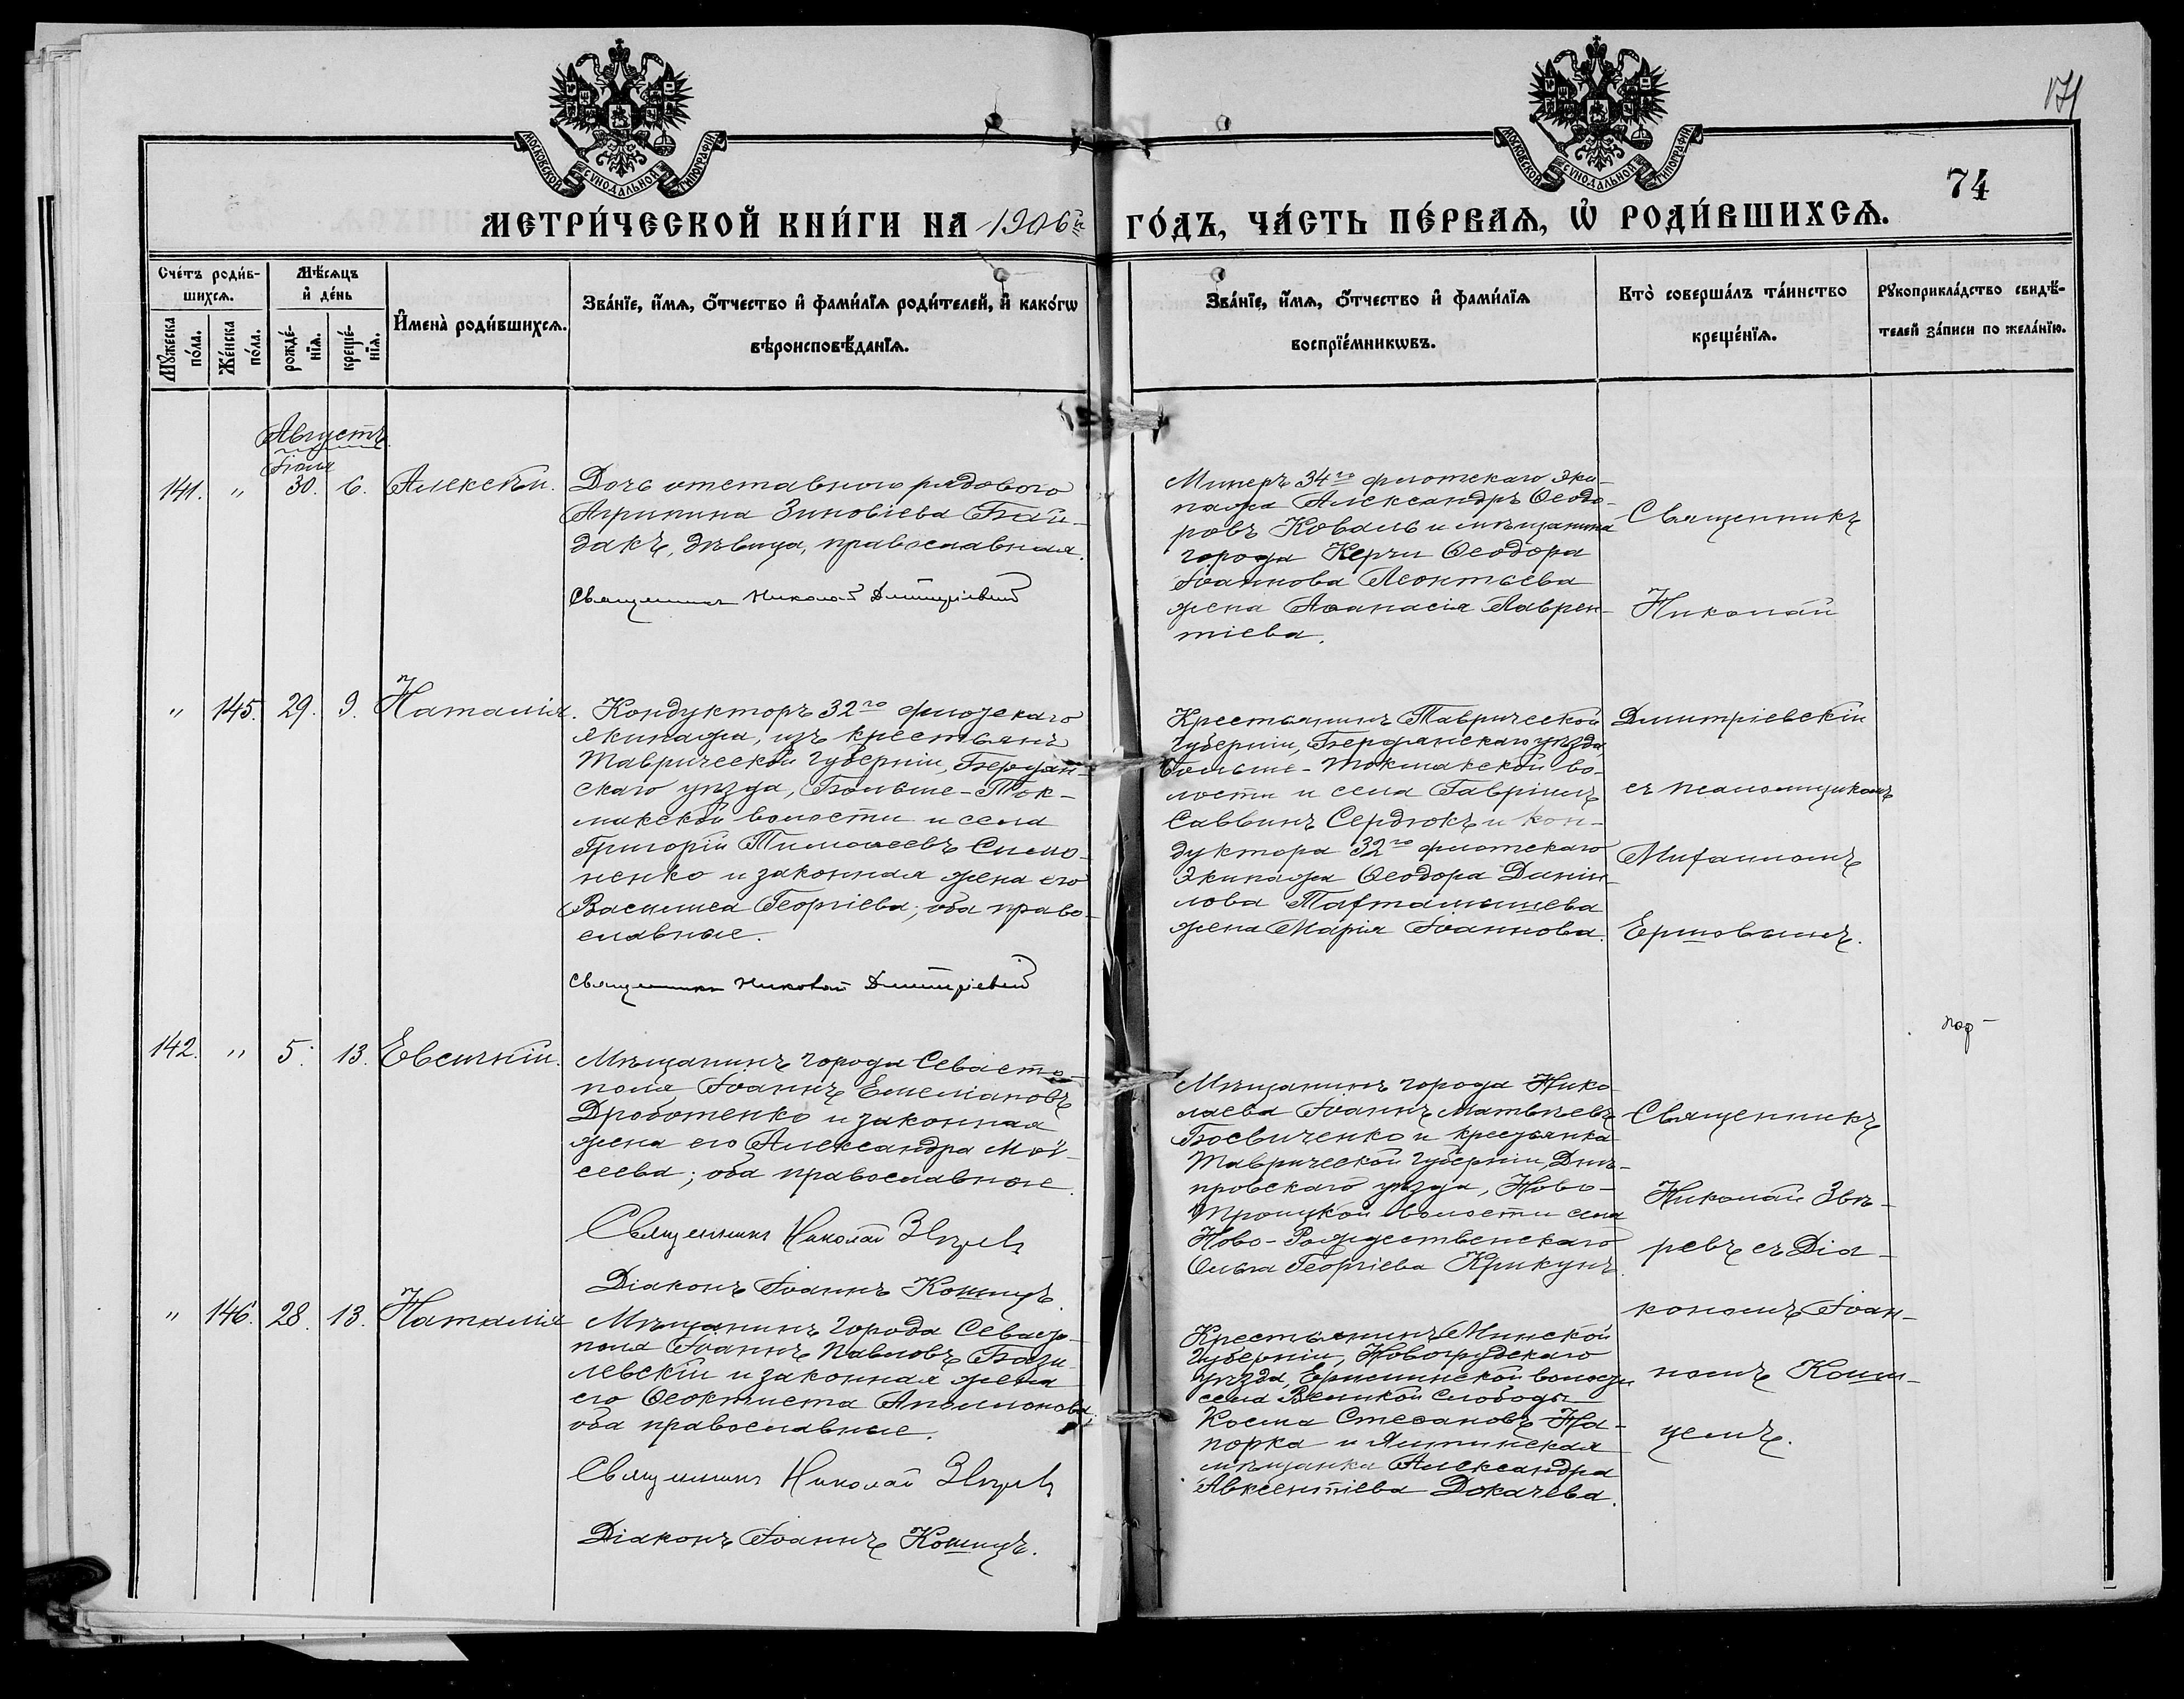 МОСКОВСКОЙ СѴНОДАЛЬНОЙ ТИПОГРАФІИ
МОСКОВСКОЙ СѴНОДАЛЬНОЙ ТИПОГРАФІИ
74
МЕТРИ́ЧЕСКОЙ КНИ́ГИ НА 1906й ГО́ДЪ, ЧА́СТЬ ПЕ́РВАѦ, Ѡ҆ РОДИ́ВШИХСѦ.
Сче́тъ роди́в-
шихсѧ.
Мꙋ́жеска по́ла.
Же́нска по́ла.
Мѣ́сѧцъ
и҆ де́нь
рожде́-нїѧ.
креще́-нїѧ.
И҆мена̀ роди́вшихсѧ.
Зва́нїе, и҆́мѧ, ѻ҆́тчество и҆ фами́лїѧ роди́телей, и҆ како́гѡ
вѣроисповѣ́данїѧ.
Зва́нїе, и҆́мѧ, ѻ҆́тчество и҆ фами́лїѧ
воспрїе́мникѡвъ.
Кто̀ соверша́лъ та́инство
креще́нїѧ.
Рꙋкоприкла́дство свидѣ́-
телей за́писи по жела́нїю.
Августъ
Іюля
141. " 30. 6. Алексѣй.
Дочь отставного рядового
Агрипина Зиновіева Бай-
дакъ, дѣвица, православная.
Священникъ Николай Дмитріевскій
Минеръ 34го флотскаго эки-
пажа Александръ Ѳеодо-
ровъ Коваль и мѣщанина
города Керчи Ѳеодора
Іоаннова Леонтьева
жена Аѳанасія Лаврен-
тіева.
Священникъ
Николай
Дмитріевскій
съ псаломщикомъ
Михаиломъ
Ершовымъ.
" 145. 29. 9. Наталія.
Кондукторъ 32го флотскаго
экипажа, изъ крестьянъ
Таврической губерніи, Бердян-
скаго уѣзда, Больше-Ток-
макской волости и села
Григорій Тимоѳеевъ Симо-
ненко и законная жена его
Василиса Георгіева; оба право-
славные.
Священникъ Николай Дмитріевскій
Крестьянинъ Таврической
губерніи, Бердянскаго уѣзда,
Больше-Токмакской во-
лости и села Гавріилъ
Саввинъ Сердюкъ и кон-
дуктора 32го флотскаго
экипажа Ѳеодора Даніи-
лова Тахтамышева
жена Марія Іоаннова.
142. " 5. 13. Евсигній.
Мѣщанинъ города Севасто-
поля Іоаннъ Емеліановъ
Дроботенко и законная
жена его Александра Мой-
сеева; оба православные.
Священникъ Николай Звѣревъ
Діаконъ Іоаннъ Кошицъ.
Мѣщанинъ города Нико-
лаева Іоаннъ Матвѣевъ
Боевиченко и крестьянка
Таврической губерніи, Днѣ-
провскаго уѣзда, Ново-
Троицкой волости села
Ново-Рождественскаго
Ольга Георгіева Крикунъ.
Священникъ
Николай Звѣ-
ревъ съ Діа-
кономъ Іоан-
номъ Коши-
цемъ.
" 146. 28. 13. Наталія
Мѣщанинъ города Севасто-
поля Іоаннъ Павловъ Бази-
левскій и законная жена
его Ѳеоктиста Аполлонова,
оба православные.
Священникъ Николай Звѣревъ
Діаконъ Іоаннъ Кошицъ.
Крестьянинъ Минской
губерніи, Новогрудскаго
уѣзда, волости
села Великой Слободы
Косма Стефановъ На-
порка и Ялтинская
мѣщанка Александра
Авксентіева Докачева.